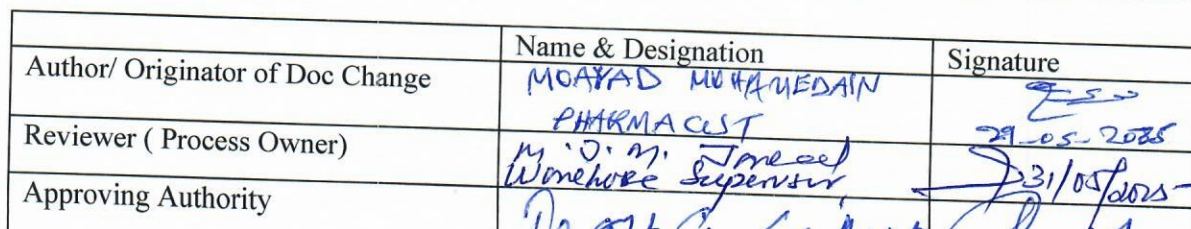 Name & Designation Signature
Author/ Originator of Doc Change MOAYAD MUHAMEDAIN
PHARMACIST 29-05-2025
Reviewer ( Process Owner) M.O.M.
Warehouse Supervisor 31/05/2025
Approving Authority